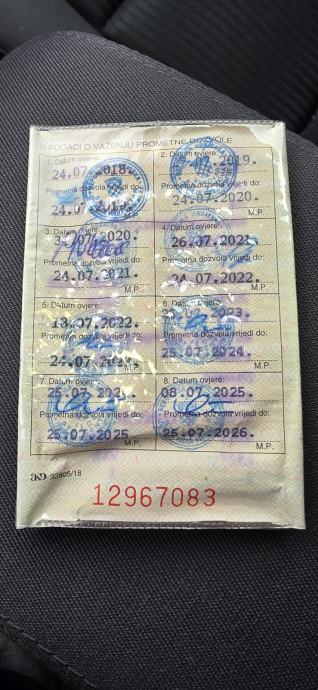 H PODACI O VAŽENJU PROMETNE DOZVOLE
1. Datum ovjere:
24.07.2018.
Prometna dozvola vrijedi do:
24.07.2019.
M.P.
2. Datum ovjere:
2019.
Prometna dozvola vrijedi do:
24.07.2020.
M.P.
3. Datum ovjere:
2020.
Prometna dozvola vrijedi do:
24.07.2021.
M.P.
4. Datum ovjere:
26.07.2021.
Prometna dozvola vrijedi do:
24.07.2022.
M.P.
5. Datum ovjere:
18.07.2022.
Prometna dozvola vrijedi do:
24.07.
M.P.
6. Datum ovjere:
2023.
Prometna dozvola vrijedi do:
25.07.2024.
M.P.
7. Datum ovjere:
25.07.2024.
Prometna dozvola vrijedi do:
25.07.2025.
M.P.
8. Datum ovjere:
08.07.2025.
Prometna dozvola vrijedi do:
25.07.2026.
M.P.
akd 32805/18
12967083